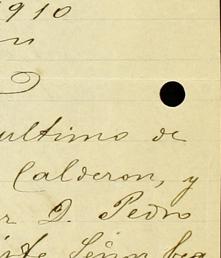 1910
ultimo de
Calderon, y
r D. Pedro
Señor